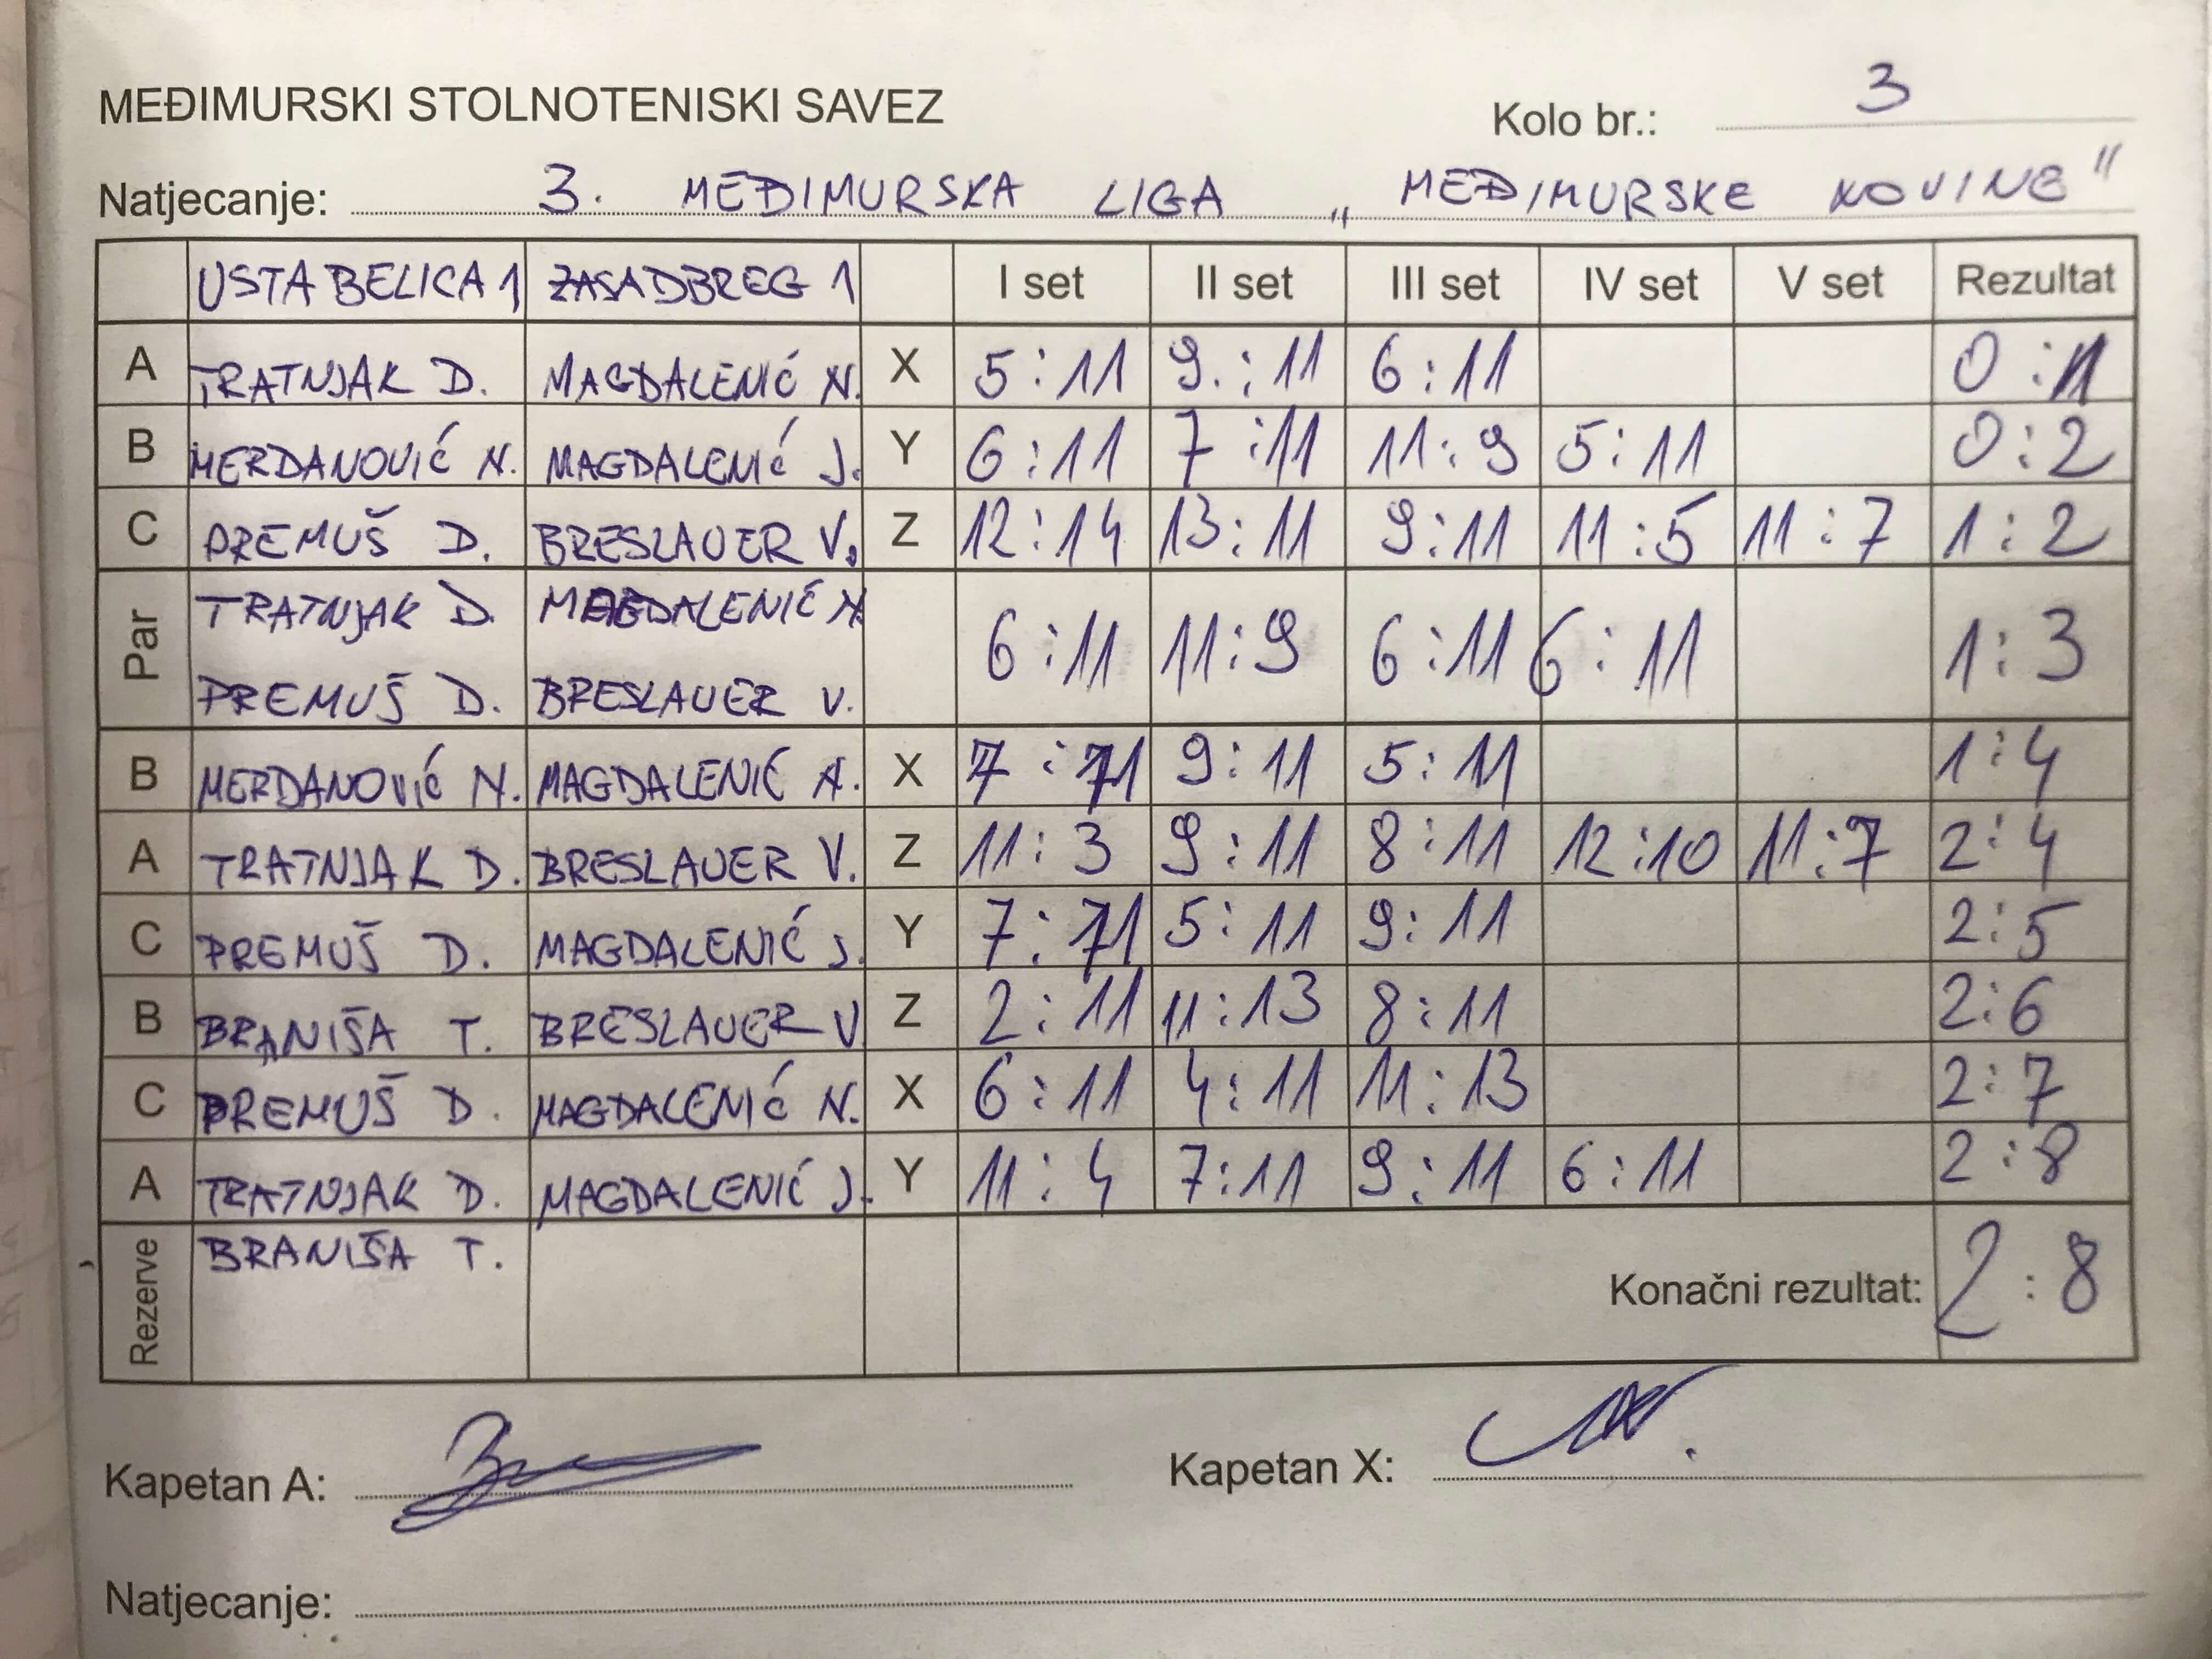 MEĐIMURSKI STOLNOTENISKI SAVEZ
Kolo br.: 3
Natjecanje: 3. MEĐIMURSKA LIGA „MEĐIMURSKE NOVINE"
USTA BELICA 1 ZASADBREG 1 I set II set III set IV set V set Rezultat
A TRATNJAK D. MAGDALENIĆ N. X 5:11 9:11 6:11 0:1
B MERDANOVIĆ N. MAGDALENIĆ J. Y 6:11 7:11 11:9 5:11 0:2
C PREMUŠ D. BRESLAUER V. Z 12:14 13:11 9:11 11:5 11:7 1:2
Par TRATNJAK D. MAGDALENIĆ N. 6:11 11:9 6:11 6:11 1:3
PREMUŠ D. BRESLAUER V.
B MERDANOVIĆ N. MAGDALENIĆ N. X 7:11 9:11 5:11 1:4
A TRATNJAK D. BRESLAUER V. Z 11:3 9:11 8:11 12:10 11:7 2:4
C PREMUŠ D. MAGDALENIĆ J. Y 7:11 5:11 9:11 2:5
B BRANIŠA T. BRESLAUER V Z 2:11 11:13 8:11 2:6
C PREMUŠ D. MAGDALENIĆ N. X 6:11 4:11 11:13 2:7
A TRATNJAK D. MAGDALENIĆ J. Y 11:4 7:11 9:11 6:11 2:8
Rezerve BRANIŠA T. Konačni rezultat: 2:8
Kapetan A: Kapetan X:
Natjecanje: